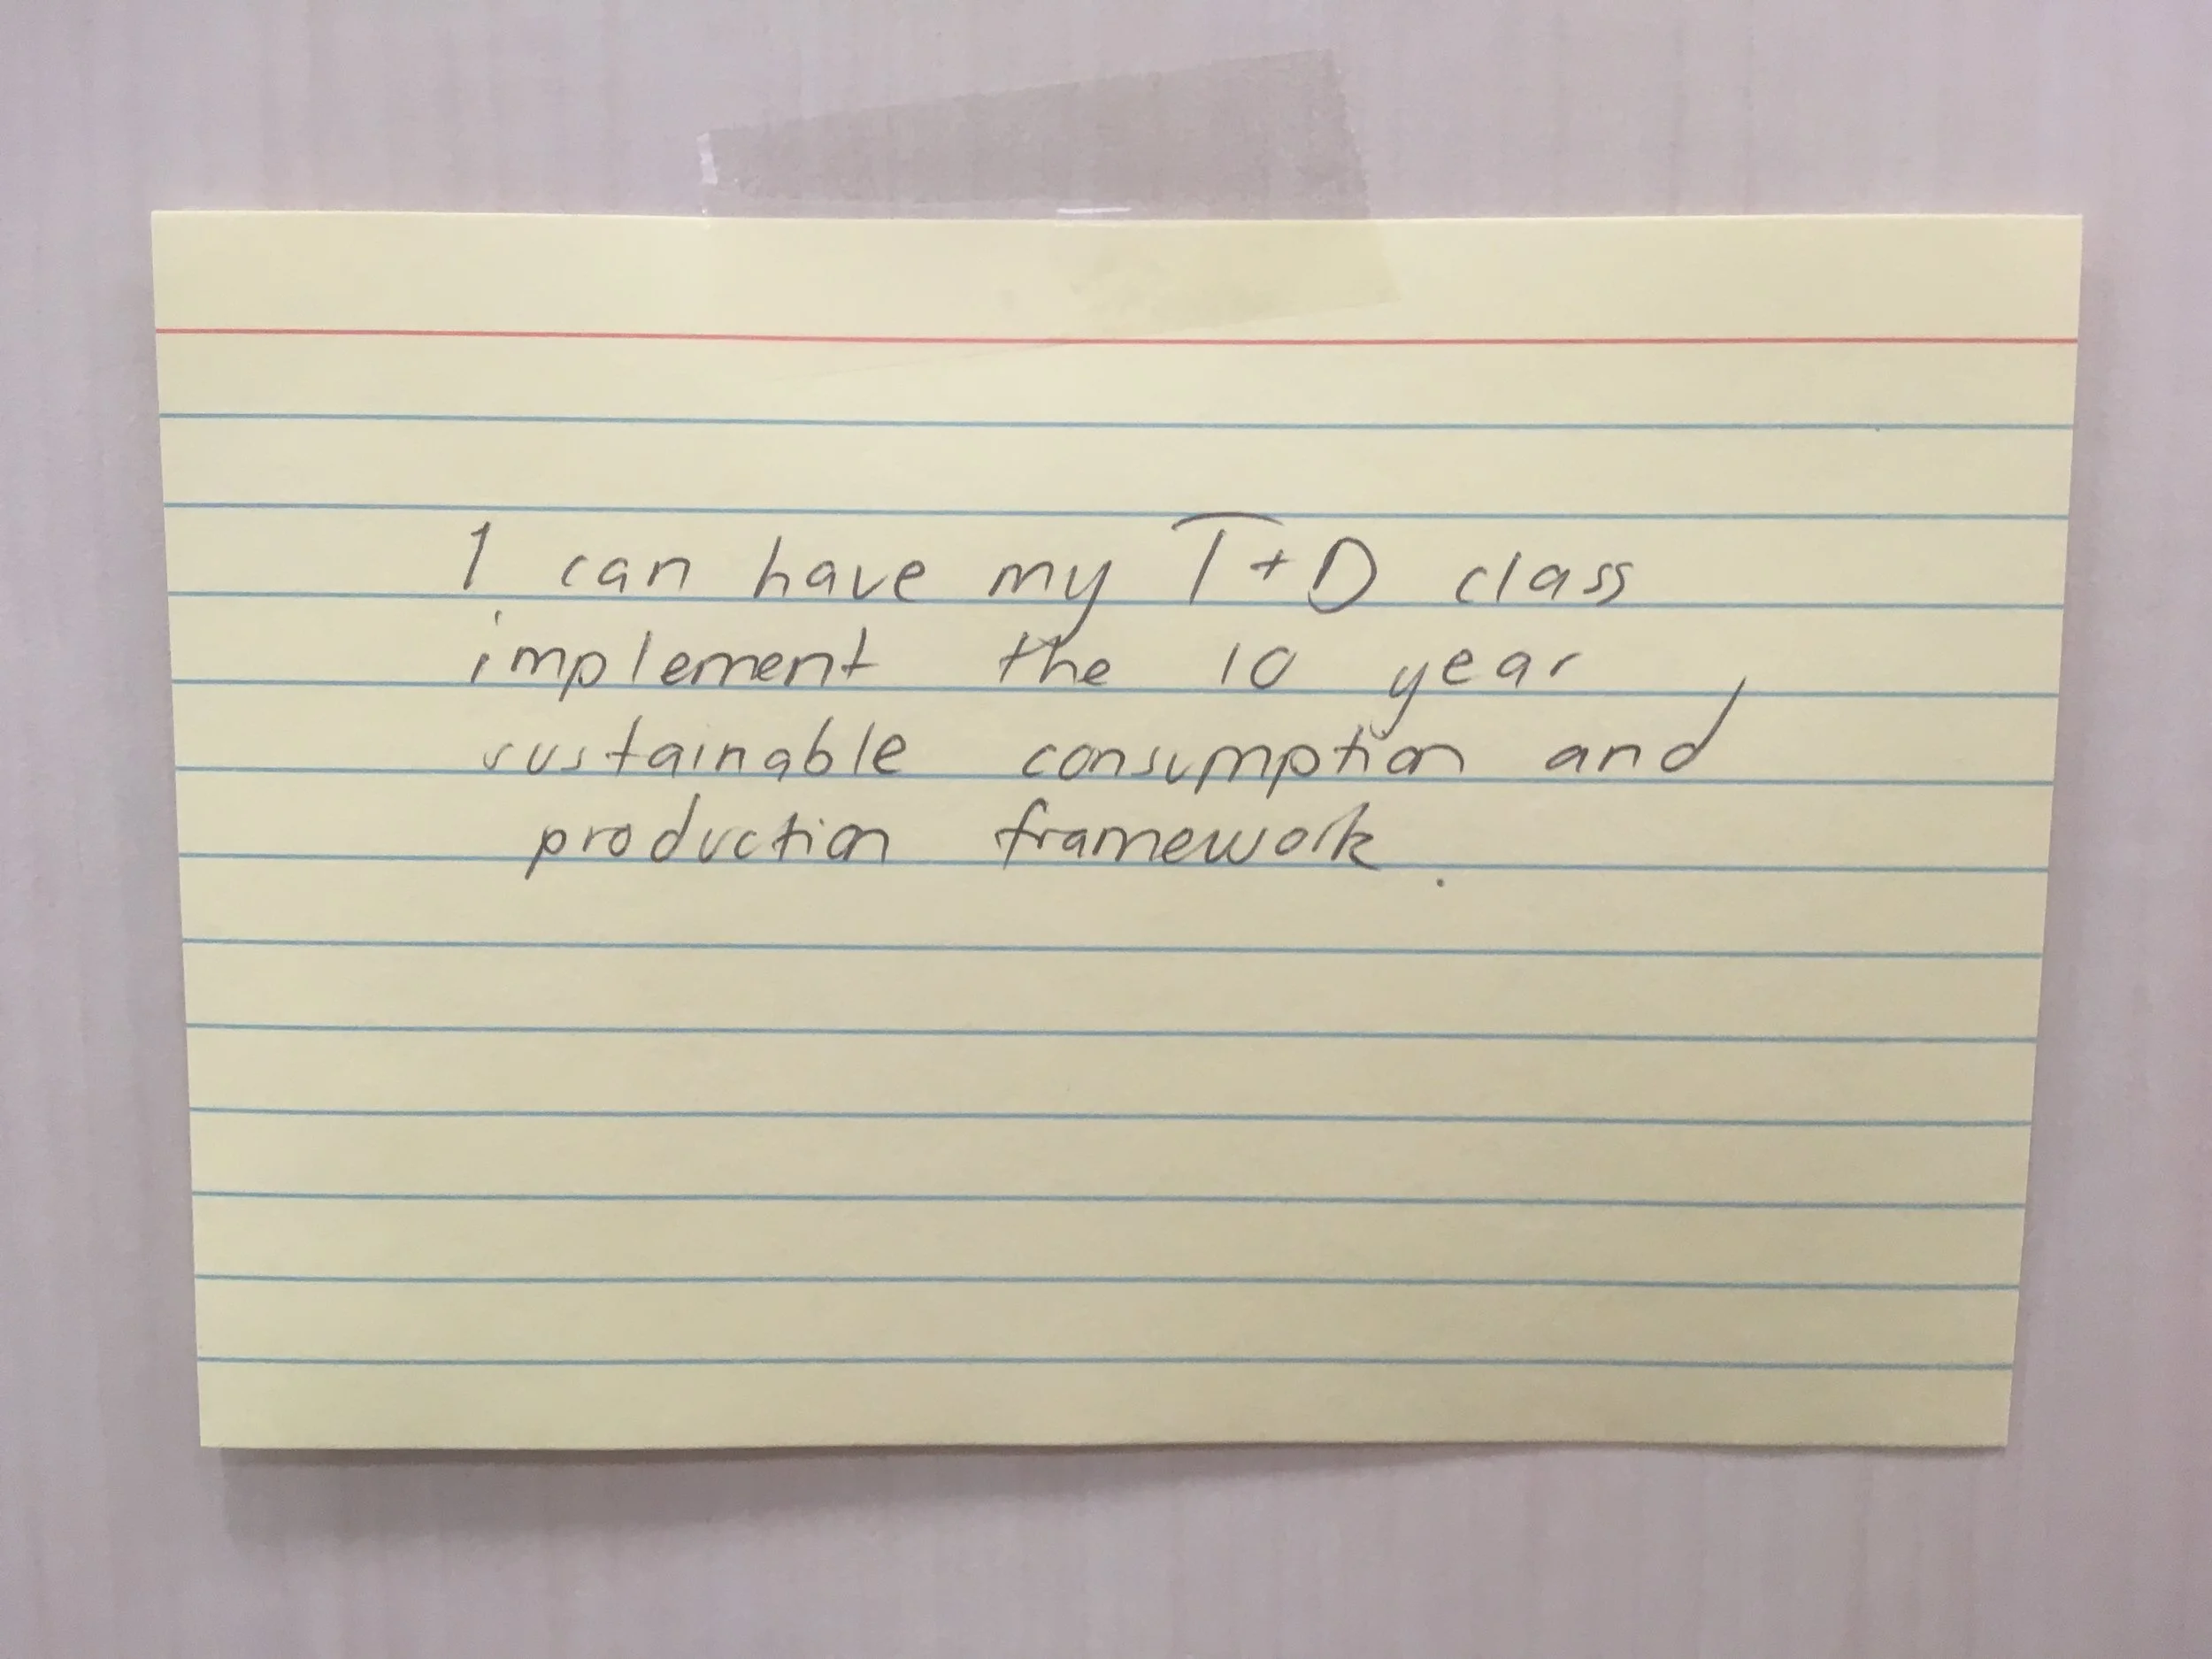 I can have my T+D class
implement the 10 year
sustainable consumption and
production framework.